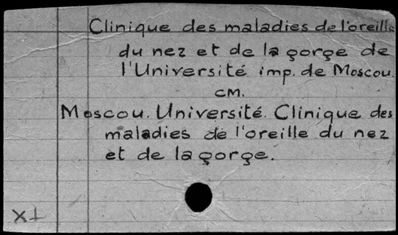 Clinique des maladies de l'oreille
du nez et de la gorge de
l'Université imp. de Moscou.
см.
Moscou. Université. Clinique des
maladies de l'oreille du nez
et de la gorge.
X1